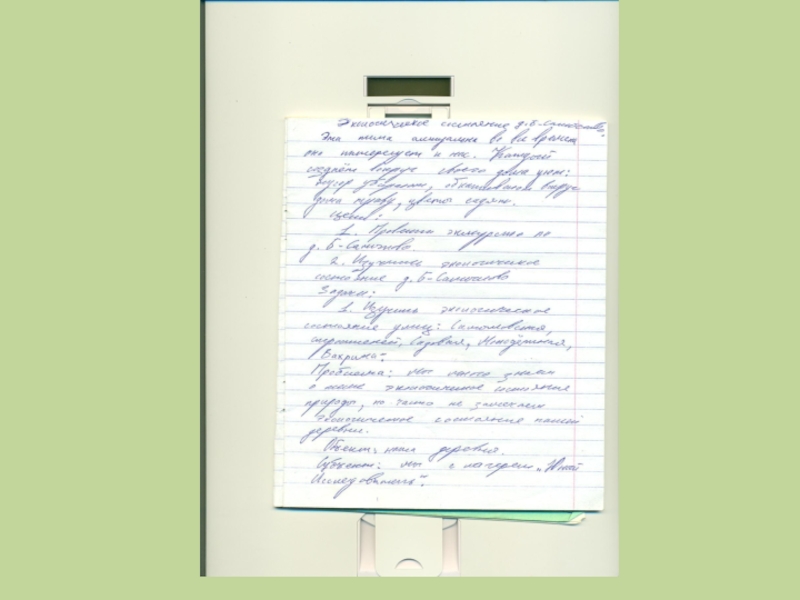 Экологическое состояние д. Б-
Эта тема актуальна во все времена
она интересует и нас. Каждый
создаёт вокруг своего дома уют:
мусор убираем, вокруг
дома траву, цветы садят.
Цели:
1. Провести экскурсию по
д. Б-
2. Изучить экологическое
состояние д. Б-
Задачи:
1. Изучить экологическое
состояние улиц:
Садовая, Молодёжная,
Проблема: мы много знаем
о экологическое состояние
природы, но часто не замечаем
экологическое состояние нашей
деревни.
Объект: наша деревня.
Субъект: мы с лагерем „Юный
Исследователь".